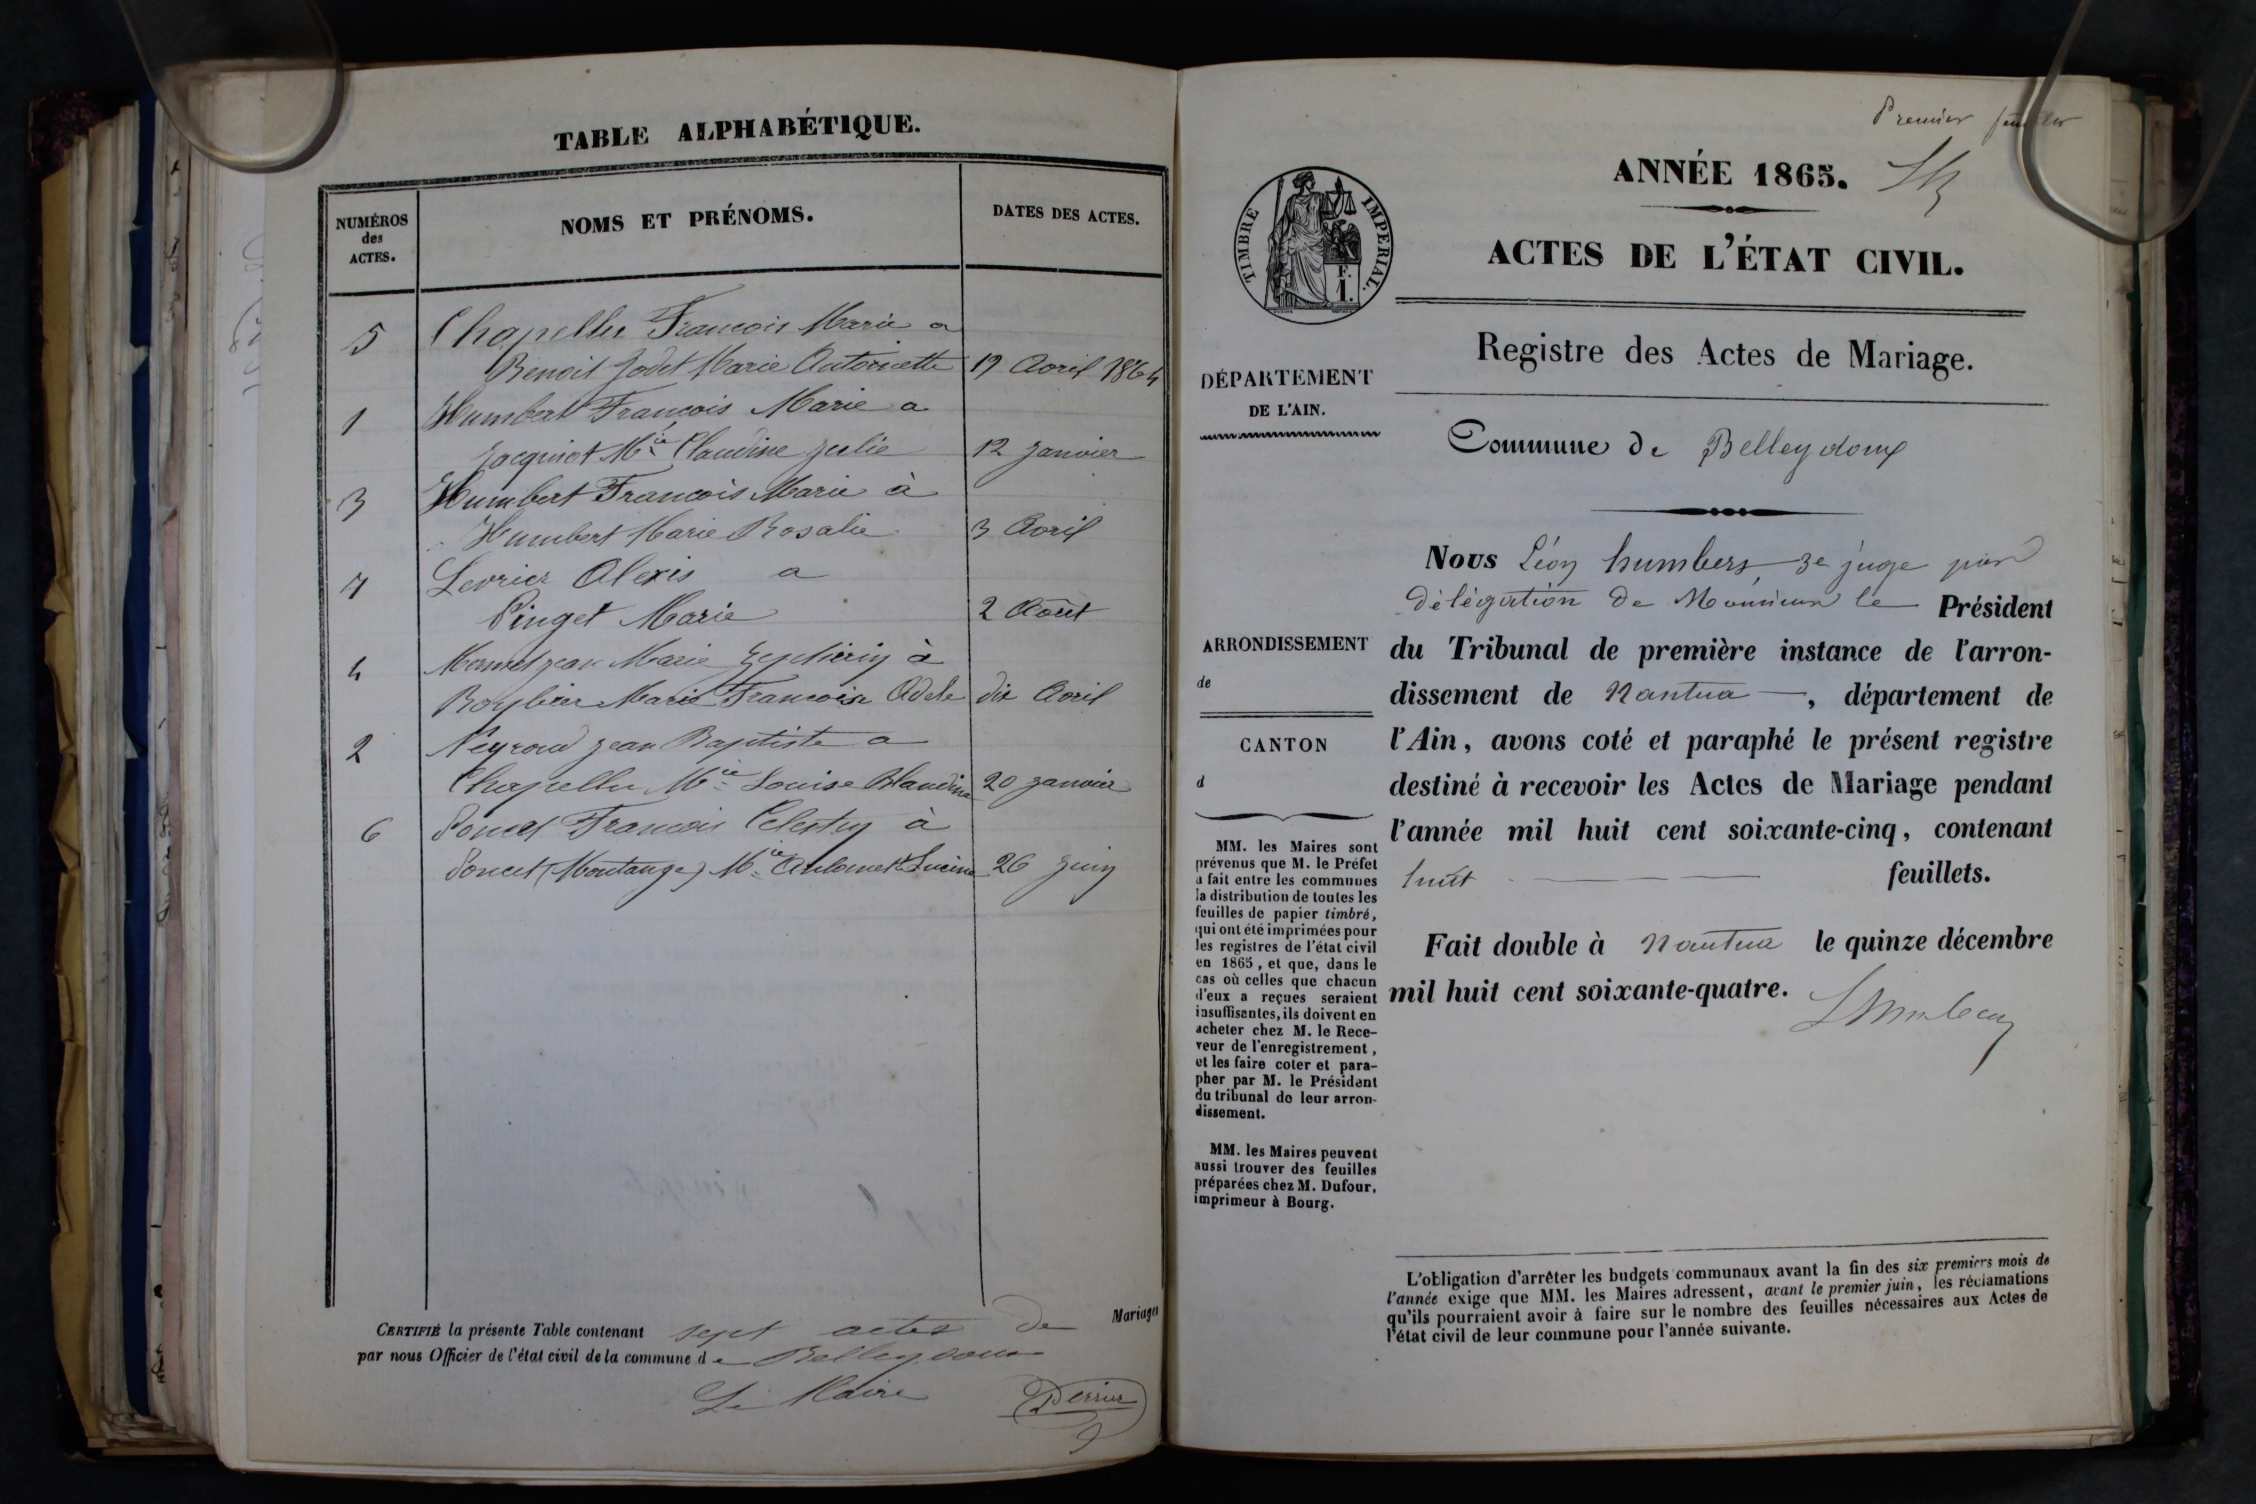 TABLE ALPHABÉTIQUE.
NUMÉROS
des
ACTES.
NOMS ET PRÉNOMS.
DATES DES ACTES.
5 Chapellu François Marie a
Benoit Jodet Marie Antoinette 19 Avril 1864
1 Humbert François Marie a
Jacquiot Mie Claudine Julie 12 Janvier
3 Humbert François Marie à
Humbert Marie Rosalie 3 Avril
7 Levrier Alexis a
Pinget Marie 2 Août
4 Mermet Jean Marie à
Marie Françoise Adele dix Avril
2 Neyroud Jean Baptiste a
Chapellu Mie Louise Blandine 20 Janvier
6 Poncet François Celestin à
Poncet (Montange) Mie Antoinette Lucine 26 Juin
CERTIFIÉ la présente Table contenant sept actes de Mariages
par nous Officier de l'état civil de la commune de Belleydoux
Le Maire
Perrier
Premier feuillet
ANNÉE 1865.
ACTES DE L'ÉTAT CIVIL.
TIMBRE IMPERIAL.
F.
1.
Registre des Actes de Mariage.
DÉPARTEMENT
DE L'AIN.
Commune de Belleydoux
ARRONDISSEMENT
de
CANTON
d
Nous Léon humbert 3e juge par
délégation de Monsieur le Président
du Tribunal de première instance de l'arron-
dissement de Nantua, département de
l'Ain, avons coté et paraphé le présent registre
destiné à recevoir les Actes de Mariage pendant
l'année mil huit cent soixante-cinq, contenant
huit feuillets.
Fait double à Nantua le quinze décembre
mil huit cent soixante-quatre.
MM. les Maires sont
prévenus que M. le Préfet
a fait entre les communes
la distribution de toutes les
feuilles de papier timbré,
qui ont été imprimées pour
les registres de l'état civil
en 1865, et que, dans le
cas où celles que chacun
d'eux a reçues seraient
insuffisantes, ils doivent en
acheter chez M. le Rece-
veur de l'enregistrement,
et les faire coter et para-
pher par M. le Président
du tribunal de leur arron-
dissement.
MM. les Maires peuvent
aussi trouver des feuilles
préparées chez M. Dufour,
imprimeur à Bourg.
L'obligation d'arrêter les budgets communaux avant la fin des six premiers mois de
l'année exige que MM. les Maires adressent, avant le premier juin, les réclamations
qu'ils pourraient avoir à faire sur le nombre des feuilles nécessaires aux Actes de
l'état civil de leur commune pour l'année suivante.